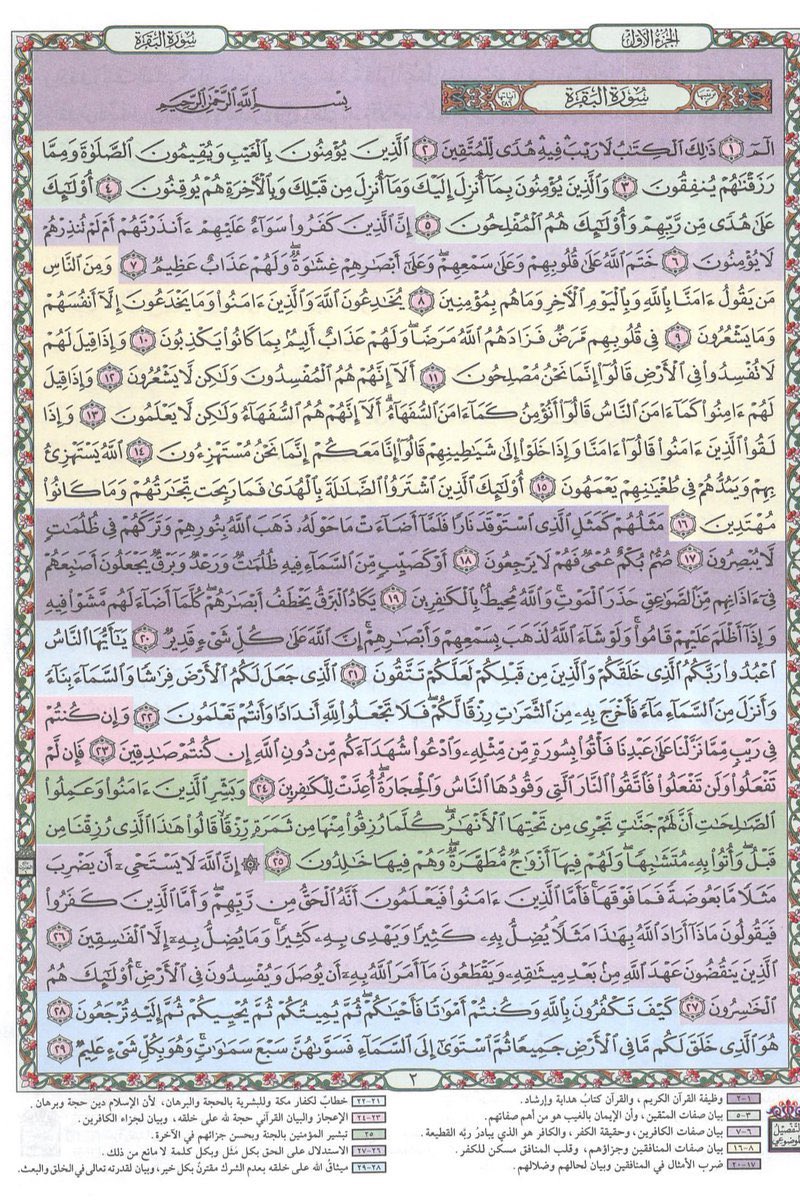 الجزء الأول
سورة البقرة
سُورَةُ البَقَرَةِ
ترتيبها ٢
آياتها ٢٨٦
بِسْمِ اللَّهِ الرَّحْمَٰنِ الرَّحِيمِ
الٓمٓ ١ ذَٰلِكَ الْكِتَٰبُ لَا رَيْبَ ۛ فِيهِ ۛ هُدًى لِّلْمُتَّقِينَ ٢ الَّذِينَ يُؤْمِنُونَ بِالْغَيْبِ وَيُقِيمُونَ الصَّلَوٰةَ وَمِمَّا
رَزَقْنَٰهُمْ يُنفِقُونَ ٣ وَالَّذِينَ يُؤْمِنُونَ بِمَآ أُنزِلَ إِلَيْكَ وَمَآ أُنزِلَ مِن قَبْلِكَ وَبِالْءَاخِرَةِ هُمْ يُوقِنُونَ ٤ أُو۟لَٰٓئِكَ
عَلَىٰ هُدًى مِّن رَّبِّهِمْ وَأُو۟لَٰٓئِكَ هُمُ الْمُفْلِحُونَ ٥ إِنَّ الَّذِينَ كَفَرُوا۟ سَوَآءٌ عَلَيْهِمْ ءَأَنذَرْتَهُمْ أَمْ لَمْ تُنذِرْهُمْ
لَا يُؤْمِنُونَ ٦ خَتَمَ اللَّهُ عَلَىٰ قُلُوبِهِمْ وَعَلَىٰ سَمْعِهِمْ ۖ وَعَلَىٰٓ أَبْصَٰرِهِمْ غِشَٰوَةٌ ۖ وَلَهُمْ عَذَابٌ عَظِيمٌ ٧ وَمِنَ النَّاسِ
مَن يَقُولُ ءَامَنَّا بِاللَّهِ وَبِالْيَوْمِ الْءَاخِرِ وَمَا هُم بِمُؤْمِنِينَ ٨ يُخَٰدِعُونَ اللَّهَ وَالَّذِينَ ءَامَنُوا۟ وَمَا يَخْدَعُونَ إِلَّآ أَنفُسَهُمْ
وَمَا يَشْعُرُونَ ٩ فِى قُلُوبِهِم مَّرَضٌ فَزَادَهُمُ اللَّهُ مَرَضًا ۖ وَلَهُمْ عَذَابٌ أَلِيمٌۢ بِمَا كَانُوا۟ يَكْذِبُونَ ١٠ وَإِذَا قِيلَ لَهُمْ
لَا تُفْسِدُوا۟ فِى الْأَرْضِ قَالُوٓا۟ إِنَّمَا نَحْنُ مُصْلِحُونَ ١١ أَلَآ إِنَّهُمْ هُمُ الْمُفْسِدُونَ وَلَٰكِن لَّا يَشْعُرُونَ ١٢ وَإِذَا قِيلَ
لَهُمْ ءَامِنُوا۟ كَمَآ ءَامَنَ النَّاسُ قَالُوٓا۟ أَنُؤْمِنُ كَمَآ ءَامَنَ السُّفَهَآءُ ۗ أَلَآ إِنَّهُمْ هُمُ السُّفَهَآءُ وَلَٰكِن لَّا يَعْلَمُونَ ١٣ وَإِذَا
لَقُوا۟ الَّذِينَ ءَامَنُوا۟ قَالُوٓا۟ ءَامَنَّا وَإِذَا خَلَوْا۟ إِلَىٰ شَيَٰطِينِهِمْ قَالُوٓا۟ إِنَّا مَعَكُمْ إِنَّمَا نَحْنُ مُسْتَهْزِءُونَ ١٤ اللَّهُ يَسْتَهْزِئُ
بِهِمْ وَيَمُدُّهُمْ فِى طُغْيَٰنِهِمْ يَعْمَهُونَ ١٥ أُو۟لَٰٓئِكَ الَّذِينَ اشْتَرَوُا۟ الضَّلَٰلَةَ بِالْهُدَىٰ فَمَا رَبِحَت تِّجَٰرَتُهُمْ وَمَا كَانُوا۟
مُهْتَدِينَ ١٦ مَثَلُهُمْ كَمَثَلِ الَّذِى اسْتَوْقَدَ نَارًا فَلَمَّآ أَضَآءَتْ مَا حَوْلَهُۥ ذَهَبَ اللَّهُ بِنُورِهِمْ وَتَرَكَهُمْ فِى ظُلُمَٰتٍ
لَّا يُبْصِرُونَ ١٧ صُمٌّۢ بُكْمٌ عُمْىٌ فَهُمْ لَا يَرْجِعُونَ ١٨ أَوْ كَصَيِّبٍ مِّنَ السَّمَآءِ فِيهِ ظُلُمَٰتٌ وَرَعْدٌ وَبَرْقٌ يَجْعَلُونَ أَصَٰبِعَهُمْ
فِىٓ ءَاذَانِهِم مِّنَ الصَّوَٰعِقِ حَذَرَ الْمَوْتِ ۚ وَاللَّهُ مُحِيطٌۢ بِالْكَٰفِرِينَ ١٩ يَكَادُ الْبَرْقُ يَخْطَفُ أَبْصَٰرَهُمْ ۖ كُلَّمَآ أَضَآءَ لَهُم مَّشَوْا۟ فِيهِ
وَإِذَآ أَظْلَمَ عَلَيْهِمْ قَامُوا۟ ۚ وَلَوْ شَآءَ اللَّهُ لَذَهَبَ بِسَمْعِهِمْ وَأَبْصَٰرِهِمْ ۚ إِنَّ اللَّهَ عَلَىٰ كُلِّ شَىْءٍ قَدِيرٌ ٢٠ يَٰٓأَيُّهَا النَّاسُ
اعْبُدُوا۟ رَبَّكُمُ الَّذِى خَلَقَكُمْ وَالَّذِينَ مِن قَبْلِكُمْ لَعَلَّكُمْ تَتَّقُونَ ٢١ الَّذِى جَعَلَ لَكُمُ الْأَرْضَ فِرَٰشًا وَالسَّمَآءَ بِنَآءً
وَأَنزَلَ مِنَ السَّمَآءِ مَآءً فَأَخْرَجَ بِهِۦ مِنَ الثَّمَرَٰتِ رِزْقًا لَّكُمْ ۖ فَلَا تَجْعَلُوا۟ لِلَّهِ أَندَادًا وَأَنتُمْ تَعْلَمُونَ ٢٢ وَإِن كُنتُمْ
فِى رَيْبٍ مِّمَّا نَزَّلْنَا عَلَىٰ عَبْدِنَا فَأْتُوا۟ بِسُورَةٍ مِّن مِّثْلِهِۦ وَادْعُوا۟ شُهَدَآءَكُم مِّن دُونِ اللَّهِ إِن كُنتُمْ صَٰدِقِينَ ٢٣ فَإِن لَّمْ
تَفْعَلُوا۟ وَلَن تَفْعَلُوا۟ فَاتَّقُوا۟ النَّارَ الَّتِى وَقُودُهَا النَّاسُ وَالْحِجَارَةُ ۖ أُعِدَّتْ لِلْكَٰفِرِينَ ٢٤ وَبَشِّرِ الَّذِينَ ءَامَنُوا۟ وَعَمِلُوا۟
الصَّٰلِحَٰتِ أَنَّ لَهُمْ جَنَّٰتٍ تَجْرِى مِن تَحْتِهَا الْأَنْهَٰرُ ۖ كُلَّمَا رُزِقُوا۟ مِنْهَا مِن ثَمَرَةٍ رِّزْقًا ۙ قَالُوا۟ هَٰذَا الَّذِى رُزِقْنَا مِن
قَبْلُ ۖ وَأُتُوا۟ بِهِۦ مُتَشَٰبِهًا ۖ وَلَهُمْ فِيهَآ أَزْوَٰجٌ مُّطَهَّرَةٌ ۖ وَهُمْ فِيهَا خَٰلِدُونَ ٢٥ ۞ إِنَّ اللَّهَ لَا يَسْتَحْىِۦٓ أَن يَضْرِبَ
مَثَلًا مَّا بَعُوضَةً فَمَا فَوْقَهَا ۚ فَأَمَّا الَّذِينَ ءَامَنُوا۟ فَيَعْلَمُونَ أَنَّهُ الْحَقُّ مِن رَّبِّهِمْ ۖ وَأَمَّا الَّذِينَ كَفَرُوا۟
فَيَقُولُونَ مَاذَآ أَرَادَ اللَّهُ بِهَٰذَا مَثَلًا ۘ يُضِلُّ بِهِۦ كَثِيرًا وَيَهْدِى بِهِۦ كَثِيرًا ۚ وَمَا يُضِلُّ بِهِۦٓ إِلَّا الْفَٰسِقِينَ ٢٦
الَّذِينَ يَنقُضُونَ عَهْدَ اللَّهِ مِنۢ بَعْدِ مِيثَٰقِهِۦ وَيَقْطَعُونَ مَآ أَمَرَ اللَّهُ بِهِۦٓ أَن يُوصَلَ وَيُفْسِدُونَ فِى الْأَرْضِ ۚ أُو۟لَٰٓئِكَ هُمُ
الْخَٰسِرُونَ ٢٧ كَيْفَ تَكْفُرُونَ بِاللَّهِ وَكُنتُمْ أَمْوَٰتًا فَأَحْيَٰكُمْ ۖ ثُمَّ يُمِيتُكُمْ ثُمَّ يُحْيِيكُمْ ثُمَّ إِلَيْهِ تُرْجَعُونَ ٢٨
هُوَ الَّذِى خَلَقَ لَكُم مَّا فِى الْأَرْضِ جَمِيعًا ثُمَّ اسْتَوَىٰٓ إِلَى السَّمَآءِ فَسَوَّىٰهُنَّ سَبْعَ سَمَٰوَٰتٍ ۚ وَهُوَ بِكُلِّ شَىْءٍ عَلِيمٌ ٢٩
٢
التفصيل الموضوعي
١-٢ وظيفة القرآن الكريم، والقرآن كتابُ هداية وإرشاد.
٣-٥ بيان صفات المتقين، وأن الإيمان بالغيب هو من أهم صفاتهم.
٦-٧ بيان صفات الكافرين، وحقيقة الكفر، والكافر هو الذي يبادرُ ربَّه القطيعة.
٨-١٦ بيان صفات المنافقين وجزاؤهم، وقلب المنافق مسكن للكفر.
١٧-٢٠ ضرب الأمثال في المنافقين وبيان لحالهم وضلالهم.
٢١-٢٢ خطابٌ لكفار مكة وللبشرية بالحجة والبرهان، لأن الإسلام دين حجة وبرهان.
٢٣-٢٤ الإعجاز والبيان القرآني حجة لله على خلقه، وبيان لجزاء الكافرين.
٢٥ تبشير المؤمنين بالجنة وبحسن جزائهم في الآخرة.
٢٦-٢٧ الاستدلال على الحق بكل مَثل وبكل كلمة لا مانع من ذلك.
٢٨-٢٩ ميثاقُ الله على خلقه بعدم الشرك مقترنٌ بكل خير، وبيان لقدرته تعالى في الخلق والبعث.